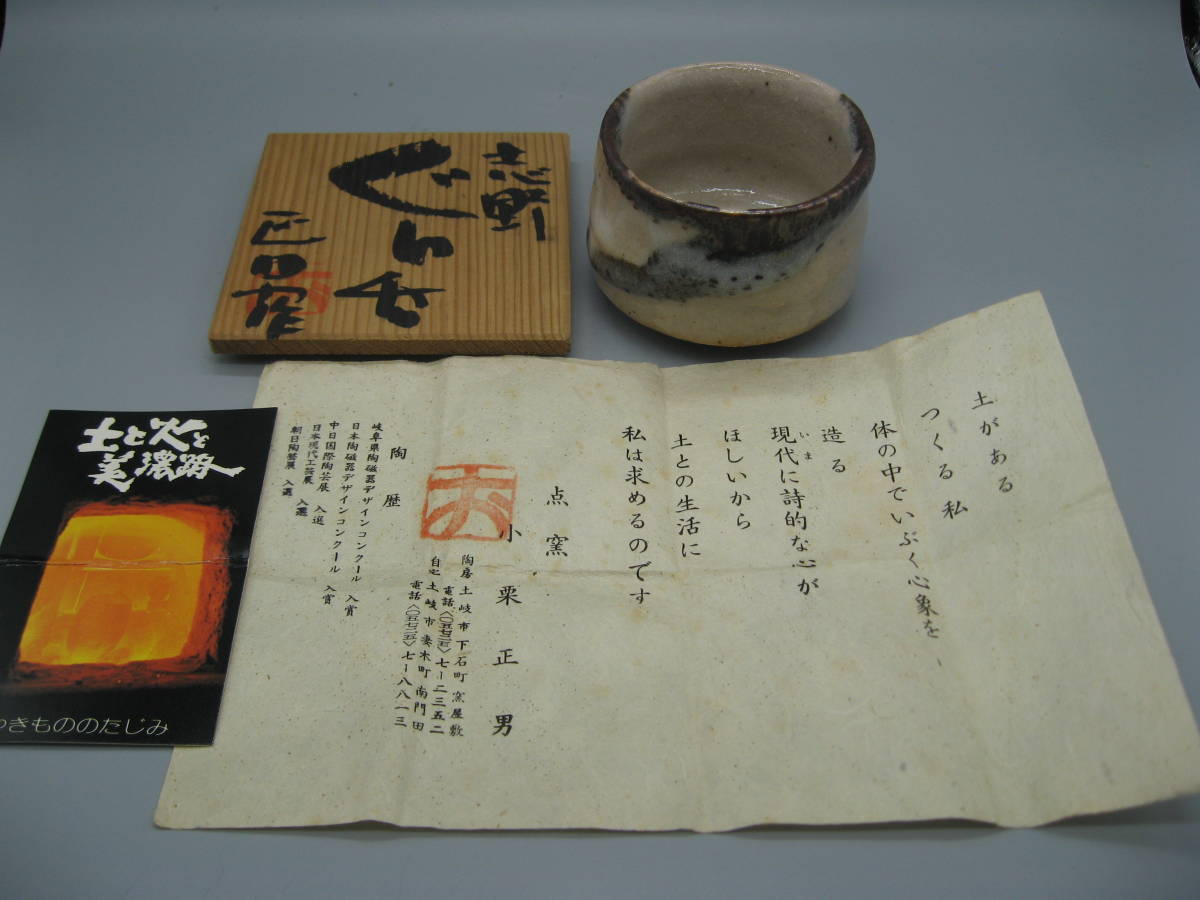 志野
ぐい呑
正男
土と火と
美濃路
きもののたじみ
土がある
つくる 私
体の中でいぶく心象を
造る
いま
現代に詩的な心が
ほしいから
土との生活に
私は求めるのです
点窯
小栗正男
陶房 土岐市下石町窯屋敷
電話〈〇五七二五〉七-二三五二
自宅 土岐市妻木町南門田
電話〈〇五七二五〉七-八八一三
陶歴
岐阜県陶磁器デザインコンクール 入賞
日本陶磁器デザインコンクール 入賞
中日国際陶芸展 入選
日本現代工芸展 入選
朝日陶芸展 入選